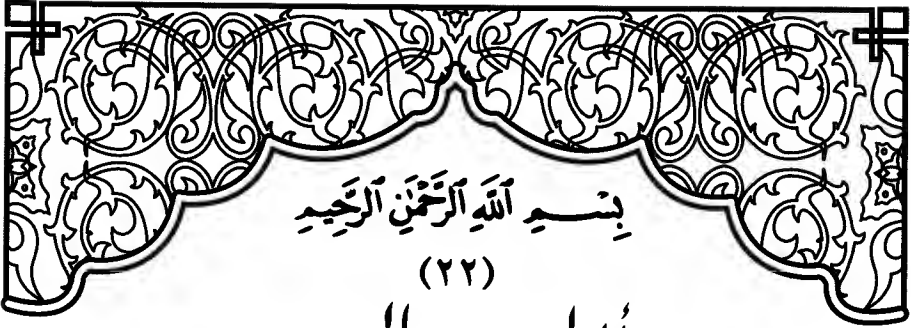 بِسْمِ ٱللَّهِ ٱلرَّحْمَٰنِ ٱلرَّحِيمِ
(٢٢)